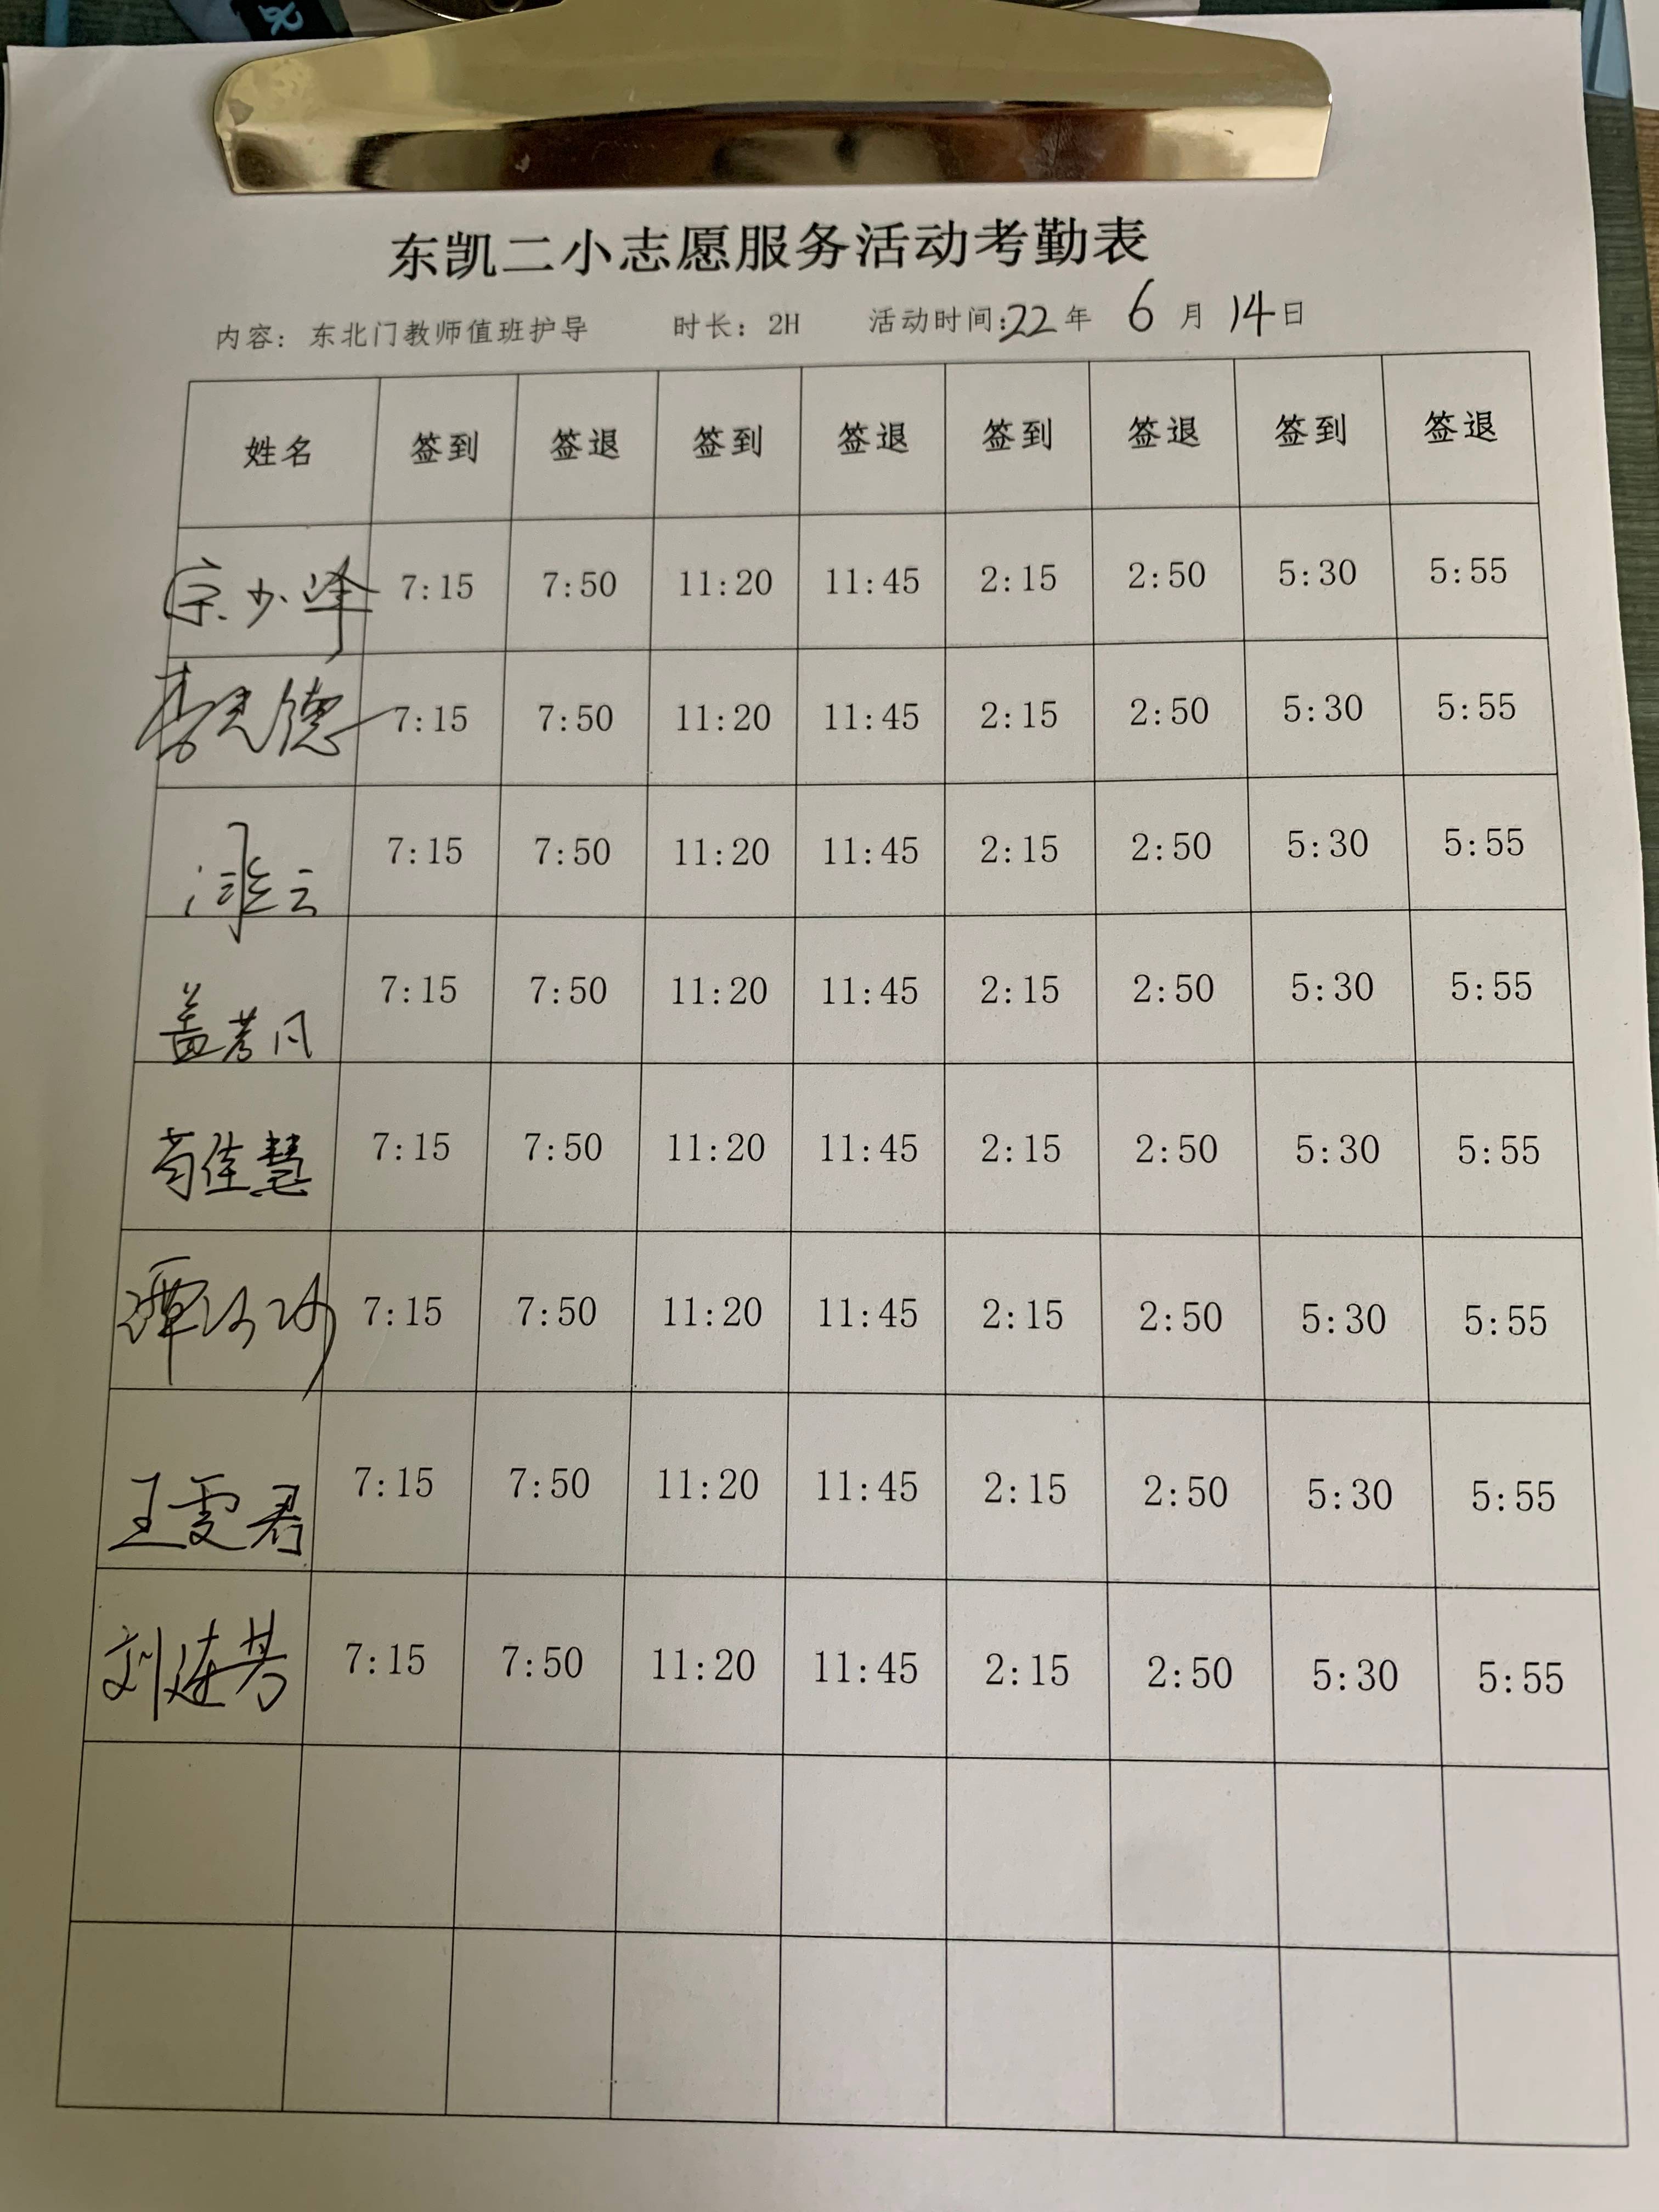 东凯二小志愿服务活动考勤表
内容：东北门教师值班护导 时长：2H 活动时间：22年 6月 14日
姓名 签到 签退 签到 签退 签到 签退 签到 签退
宗少峰 7:15 7:50 11:20 11:45 2:15 2:50 5:30 5:55
李光德 7:15 7:50 11:20 11:45 2:15 2:50 5:30 5:55
7:15 7:50 11:20 11:45 2:15 2:50 5:30 5:55
盖孝凡 7:15 7:50 11:20 11:45 2:15 2:50 5:30 5:55
苟佳慧 7:15 7:50 11:20 11:45 2:15 2:50 5:30 5:55
谭 7:15 7:50 11:20 11:45 2:15 2:50 5:30 5:55
王雯君 7:15 7:50 11:20 11:45 2:15 2:50 5:30 5:55
刘连芳 7:15 7:50 11:20 11:45 2:15 2:50 5:30 5:55